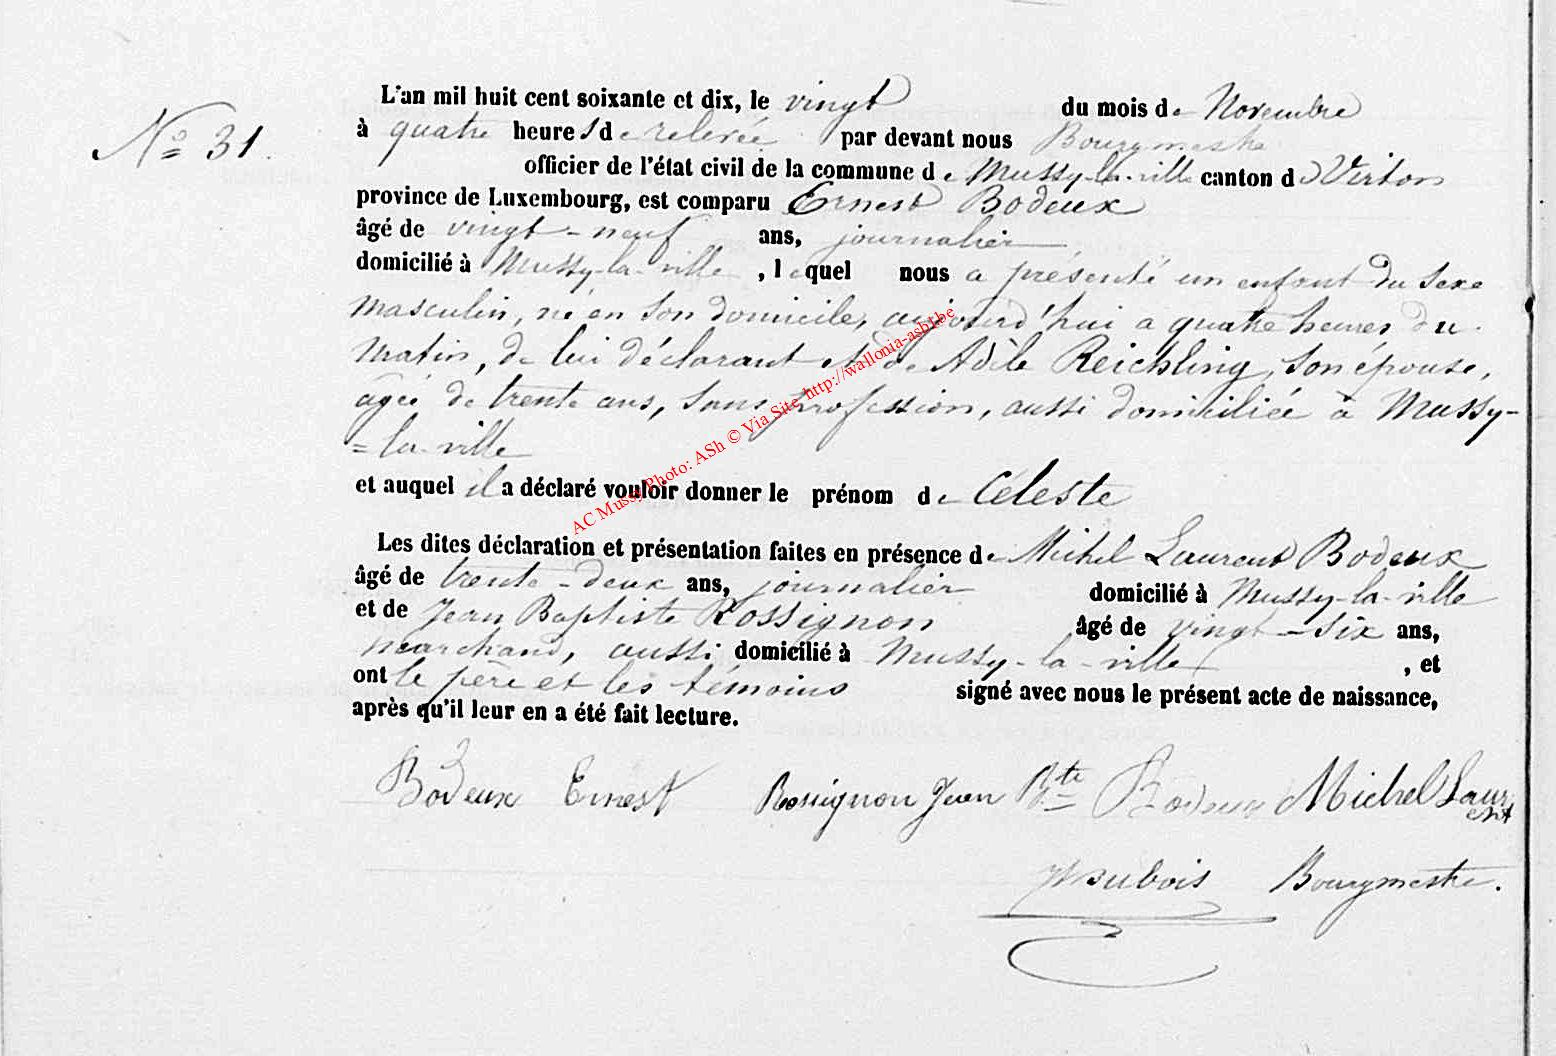 N° 31.
L'an mil huit cent soixante et dix, le vingt du mois de Novembre
à quatre heures de relevée par devant nous Bourgmestre
officier de l'état civil de la commune de Mussy-la-ville canton de Virton
province de Luxembourg, est comparu Ernest Bodeux
âgé de vingt-neuf ans, journalier
domicilié à Mussy-la-ville, lequel nous a présenté un enfant du sexe
masculin, né en son domicile, aujourd'hui a quatre heures du
matin, de lui déclarant et de Adèle Reichling, son épouse,
agée de trente ans, sans profession, aussi domiciliée à Mussy-
=la-ville
et auquel il a déclaré vouloir donner le prénom de Céleste
Les dites déclaration et présentation faites en présence de Michel Laurent Bodeux
âgé de trente-deux ans, journalier domicilié à Mussy-la-ville
et de Jean Baptiste Rossignon âgé de vingt-six ans,
marchand, aussi domicilié à Mussy-la-ville, et
ont le père et les témoins signé avec nous le présent acte de naissance,
après qu'il leur en a été fait lecture.
Bodeux Ernest Rossignon Jean Bte Bodeux Michel Laurent
Dubois Bourgmestre.
AC Mussy Photo: ASh © Via Site http://wallonia-asht.be